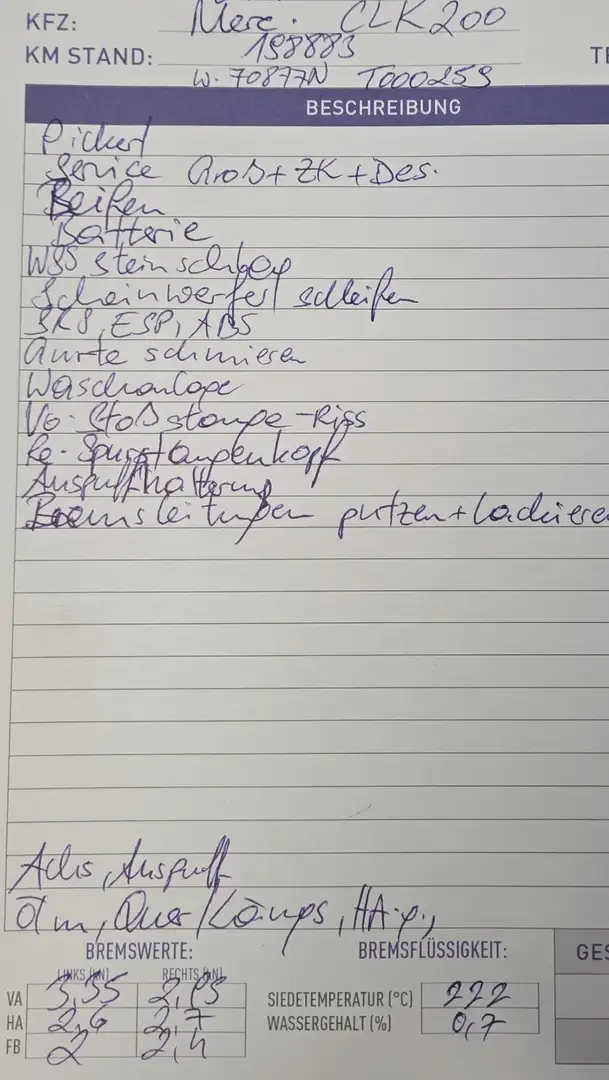 KFZ: Merc. CLK 200
KM STAND: 198883
W-70877N T000259
BESCHREIBUNG
Pickerl
Service Groß + ZK + Des.
Reifen
Batterie
WSS steinschlag
Scheinwerfer schleifen
SRS, ESP, ABS
Gurte schmieren
Waschanlage
Vo. Stoßstange - Riss
Re. Spurstangenkopf
Auspuffhalterung
Bremsleitungen putzen + lackieren
Achs, Auspuff
Öm, Quer/Längs, HA.p.,
BREMSWERTE: BREMSFLÜSSIGKEIT: GES
LINKS (kN) RECHTS (kN)
VA 3,35 SIEDETEMPERATUR (°C) 222
HA 2,6 2,7 WASSERGEHALT (%) 0,7
FB 2 2,4